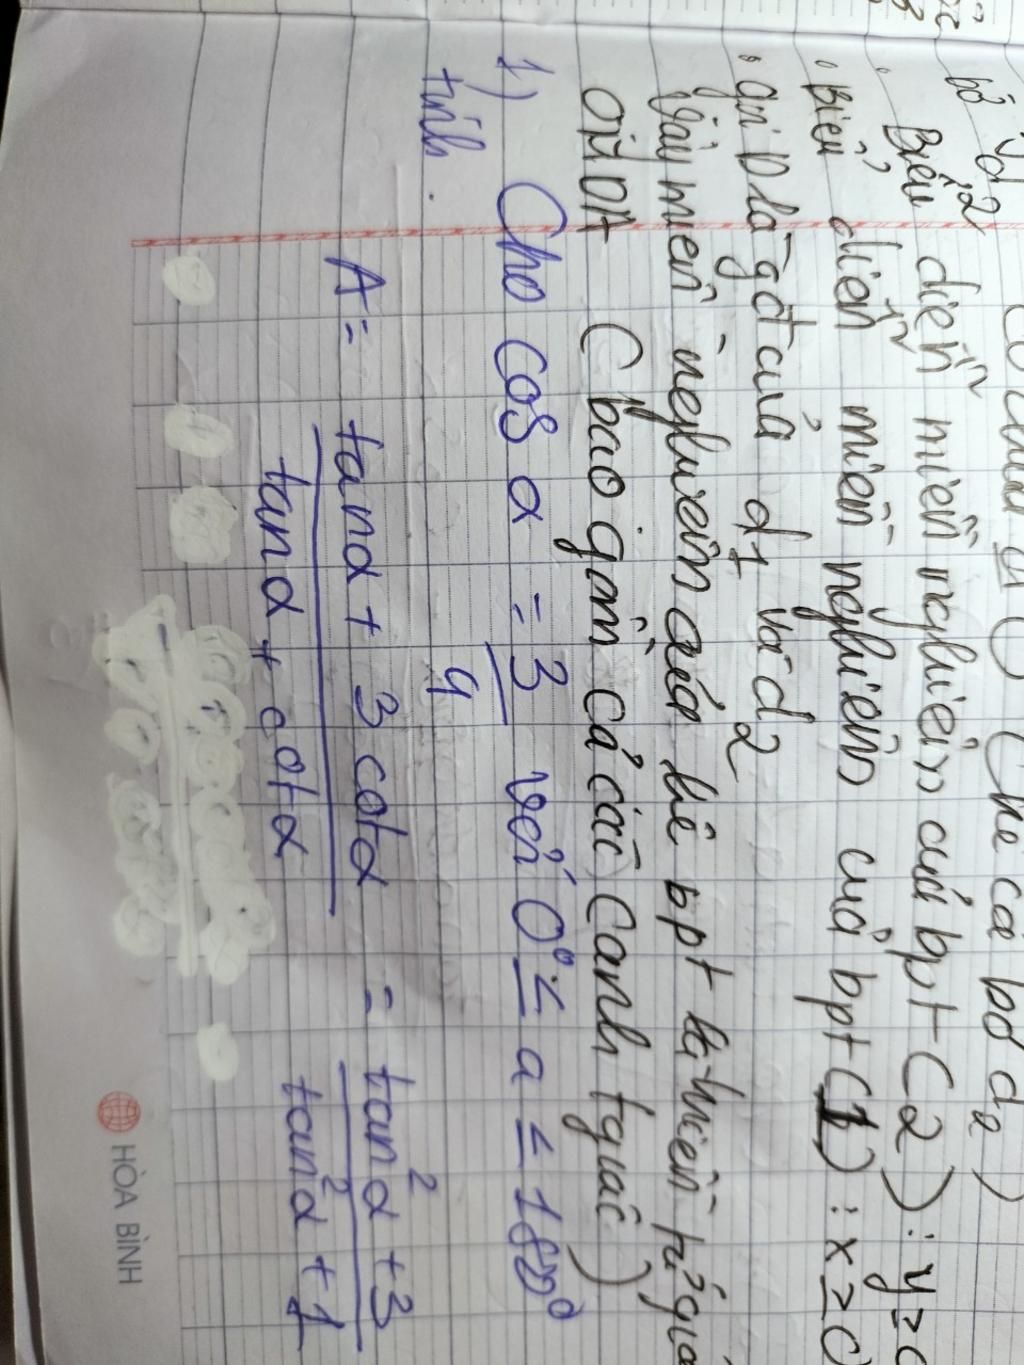 bờ d2
Biểu diễn miền nghiệm của bpt (2) : y ≥
Biểu diễn miền nghiệm của bpt (1) : x ≥ 0
gọi D là gđ của d1 và d2
Vậy miền nghiệm của hệ bpt là miền tứ giác
(bao gồm cả các cạnh tgiác)
1) Cho cos α = 3/4 với 0° ≤ α ≤ 180°
tính.
A = (tanα + 3 cotα)/(tanα + cotα) = (tan²α + 3)/(tan²α + 1)
HÒA BÌNH